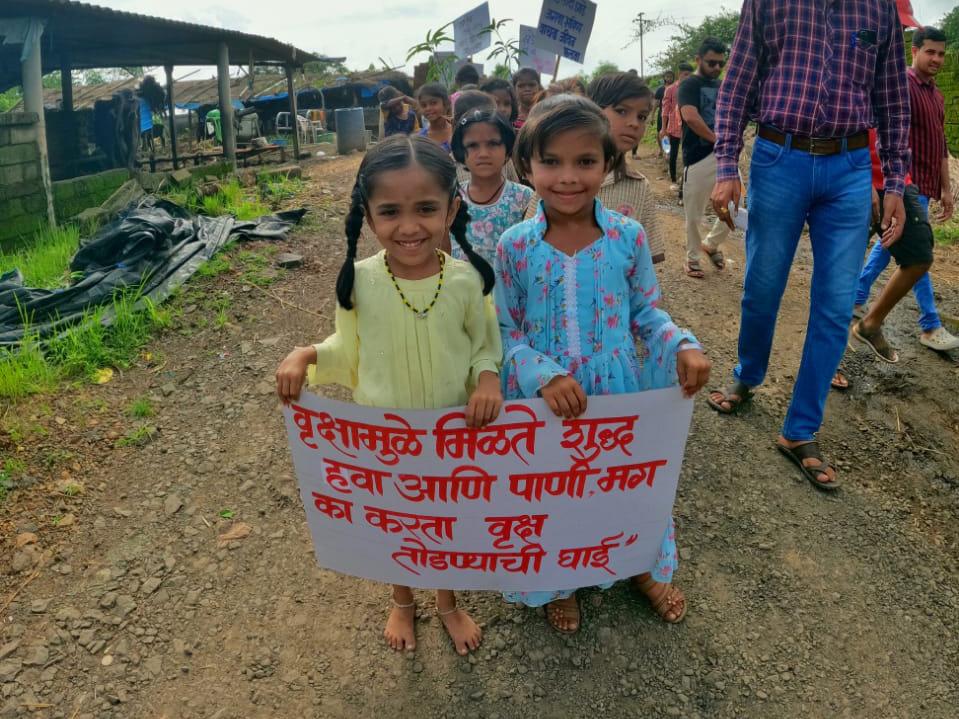 वृक्षामुळे मिळते शुद्ध
हवा आणि पाणी, मग
का करता वृक्ष
तोडण्याची घाई"